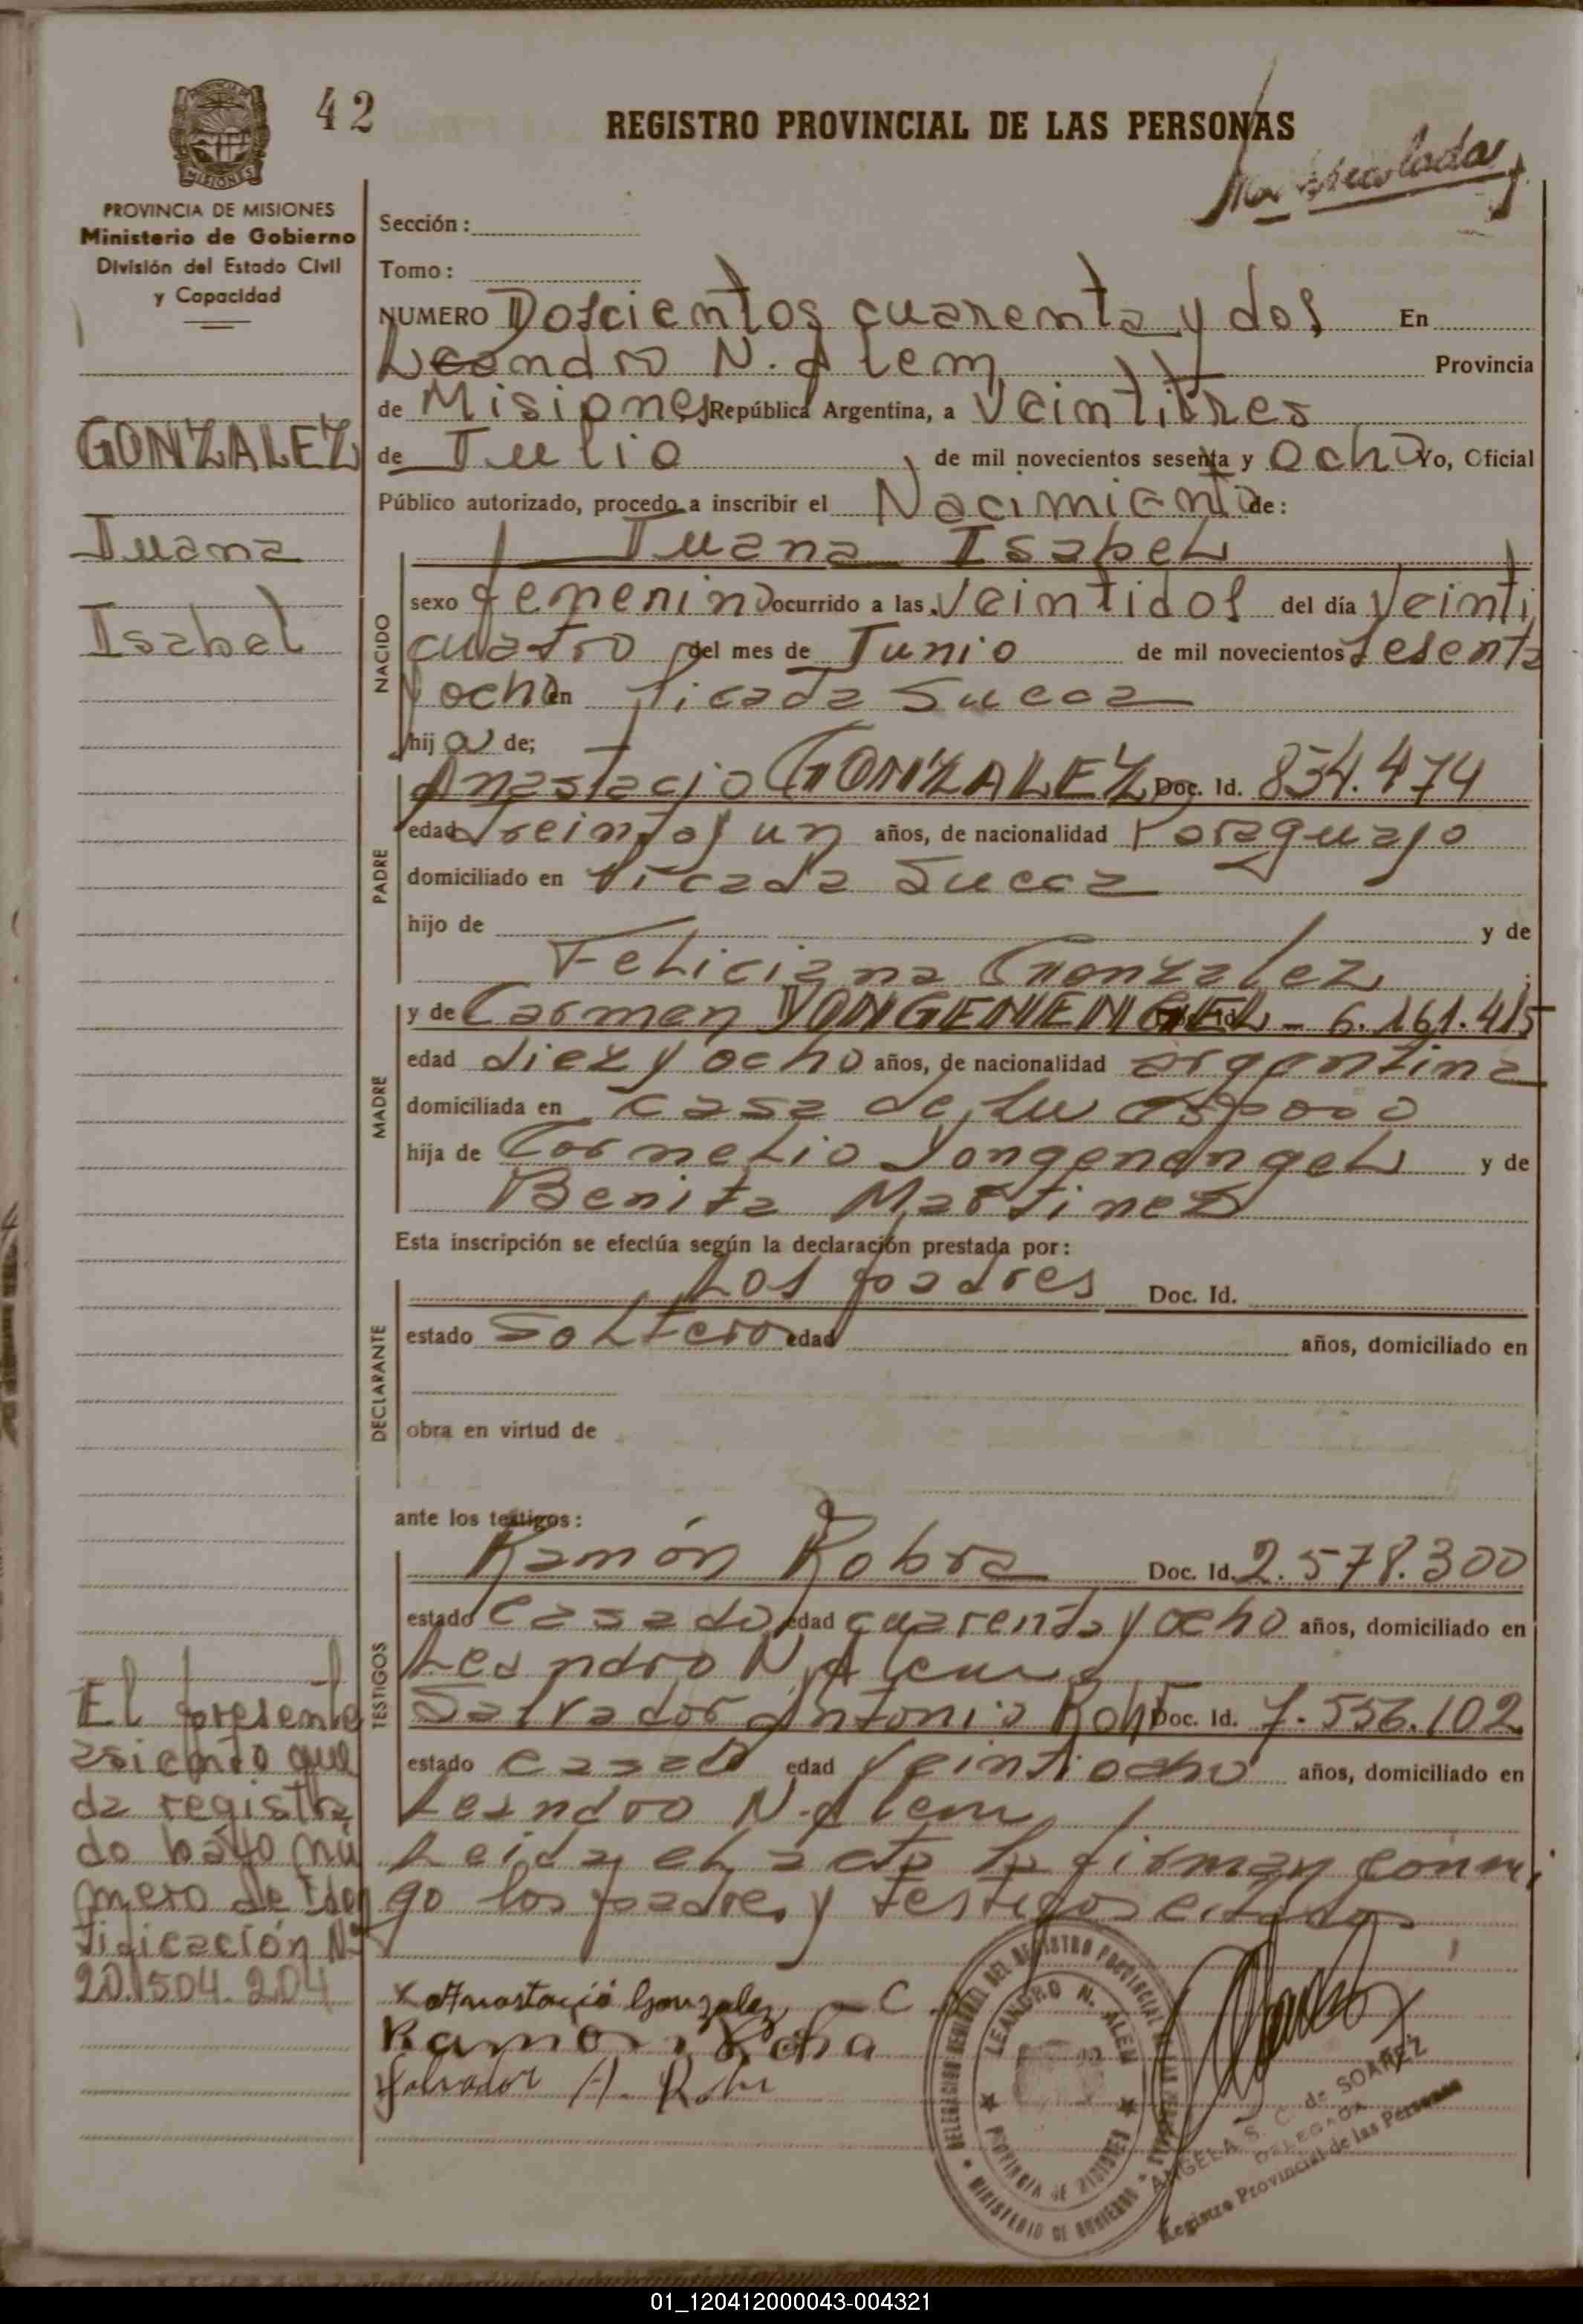 42
REGISTRO PROVINCIAL DE LAS PERSONAS
PROVINCIA DE MISIONES
Ministerio de Gobierno
División del Estado Civil
y Capacidad
GONZALEZ
Juana
Isabel
Sección:
Tomo:
NUMERO Doscientos cuarenta y dos En
Leandro N. Alem Provincia
de Misiones República Argentina, a Veintitres
de Julio de mil novecientos sesenta y ocho Yo, Oficial
Público autorizado, procedo a inscribir el Nacimiento de:
NACIDO
Juana Isabel
sexo femenino ocurrido a las Veintidos del día Veinti
cuatro del mes de Junio de mil novecientos sesenta
y ocho en Picada Sueca
hija de;
PADRE
Anastacio GONZALEZ Doc. Id. 834.474
edad treinta y un años, de nacionalidad Paraguayo
domiciliado en Picada Sueca
hijo de y de
Feliciana Gonzalez
MADRE
y de Carmen YONGENENGEL - 6.161.415
edad diez y ocho años, de nacionalidad argentina
domiciliada en casa de su esposo
hija de Cornelio Yongenangel y de
Benita Martinez
Esta inscripción se efectúa según la declaración prestada por:
DECLARANTE
Los padres Doc. Id.
estado Soltero edad años, domiciliado en
obra en virtud de
ante los testigos:
TESTIGOS
Ramón Robra Doc. Id. 2.578.300
estado casado edad cuarenta y ocho años, domiciliado en
Leandro N. Alem
Salvador Antonio Doc. Id. 7.556.102
estado casado edad Veintiocho años, domiciliado en
Leandro N. Alem
Leida el acta la firman conmi
go los padres y testigos citados
El presente
asiento que
da registra
do bajo nú
mero de Iden
tificación Nº
20.504.204
x Anastacio Gonzalez
Ramon
Salvador A.
DELEGACION GENERAL DEL REGISTRO PROVINCIAL DE LAS PERSONAS
LEANDRO N. ALEM
PROVINCIA DE MISIONES
MINISTERIO DE GOBIERNO
ANGELA S. C. de SOAREZ
DELEGADA
Registro Provincial de las Personas
01_120412000043-004321